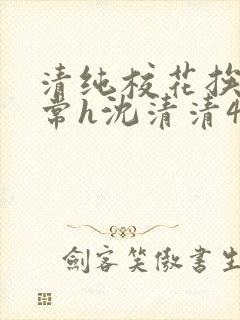 清纯校花挨
常h沈清清4
劍客笑傲書生